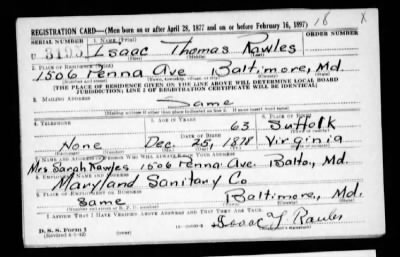 REGISTRATION CARD—(Men born on or after April 28, 1877 and on or before February 16, 1897)
18 X
SERIAL NUMBER 1. NAME (Print)
U 3195 Isaac Thomas Rawles
(First) (Middle) (Last)
2. PLACE OF RESIDENCE (Print)
1506 Penna Ave Baltimore, Md.
(Number and street) (Town, township, village, or city) (County) (State)
[THE PLACE OF RESIDENCE GIVEN ON THE LINE ABOVE WILL DETERMINE LOCAL BOARD
JURISDICTION; LINE 2 OF REGISTRATION CERTIFICATE WILL BE IDENTICAL]
3. MAILING ADDRESS
Same
(Mailing address if other than place indicated on line 2. If same insert word same)
4. TELEPHONE 5. AGE IN YEARS 6. PLACE OF BIRTH
63 Suffolk
DATE OF BIRTH
None Dec. 25, 1878 Virginia
(Exchange) (Number) (Mo.) (Day) (Yr.) (State or country)
7. NAME AND ADDRESS OF PERSON WHO WILL ALWAYS KNOW YOUR ADDRESS
Mrs Sarah Rawles 1506 Penna Ave. Balto, Md.
8. EMPLOYER'S NAME AND ADDRESS
Maryland Sanitary Co
9. PLACE OF EMPLOYMENT OR BUSINESS
Same Baltimore, Md.
(Number and street or R. F. D. number) (Town) (County) (State)
I AFFIRM THAT I HAVE VERIFIED ABOVE ANSWERS AND THAT THEY ARE TRUE.
D. S. S. Form 1
(Revised 4-1-42)
Isaac T Rawles